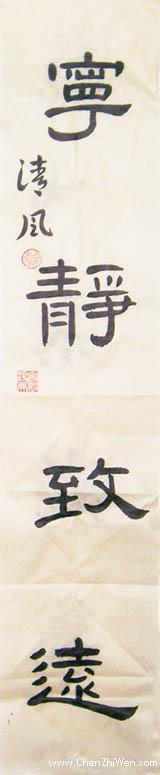 寧靜致遠
清风
www.ChenZhiWen.com